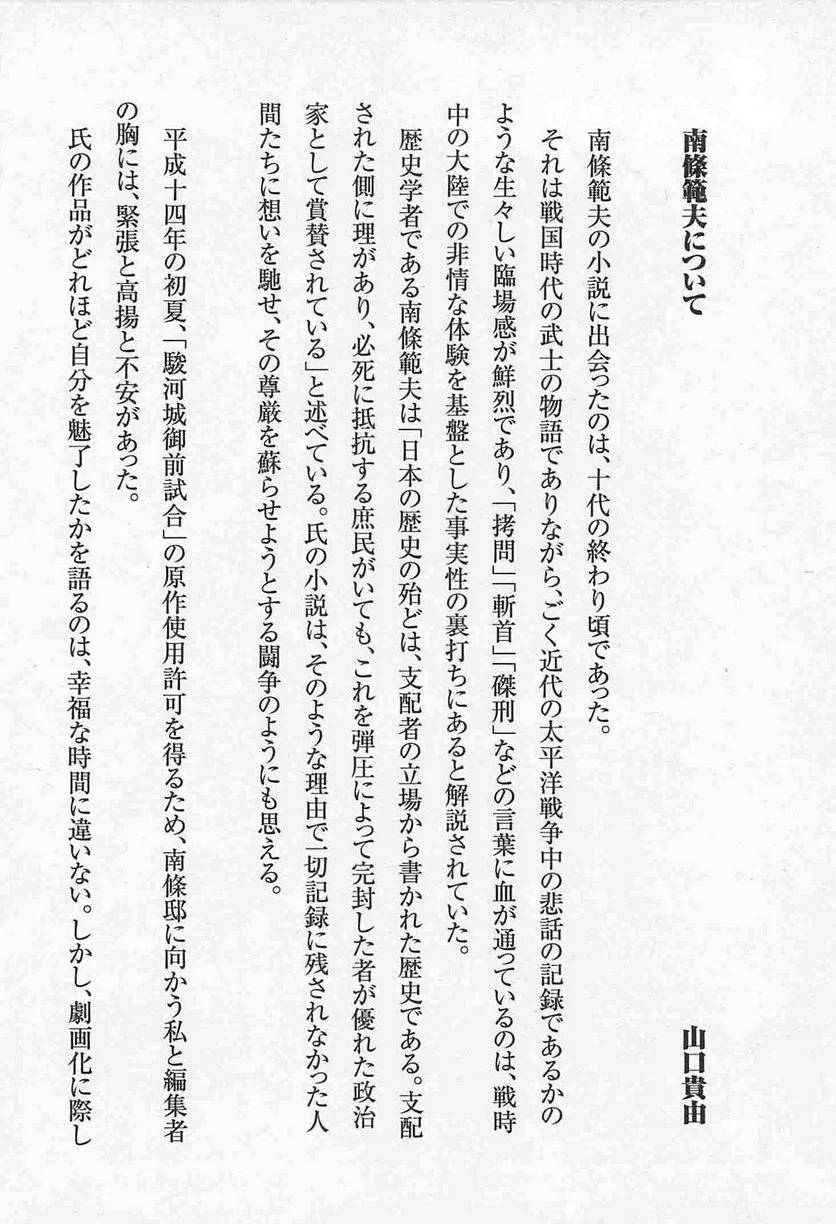 南條範夫について
山口貴由
南條範夫の小説に出会ったのは、十代の終わり頃であった。
それは戦国時代の武士の物語でありながら、ごく近代の太平洋戦争中の悲話の記録であるかの
ような生々しい臨場感が鮮烈であり、「拷問」「斬首」「磔刑」などの言葉に血が通っているのは、戦時
中の大陸での非情な体験を基盤とした事実性の裏打ちにあると解説されていた。
歴史学者である南條範夫は「日本の歴史の殆どは、支配者の立場から書かれた歴史である。支配
された側に理があり、必死に抵抗する庶民がいても、これを弾圧によって完封した者が優れた政治
家として賞賛されている」と述べている。氏の小説は、そのような理由で一切記録に残されなかった人
間たちに想いを馳せ、その尊厳を蘇らせようとする闘争のようにも思える。
平成十四年の初夏、「駿河城御前試合」の原作使用許可を得るため、南條邸に向かう私と編集者
の胸には、緊張と高揚と不安があった。
氏の作品がどれほど自分を魅了したかを語るのは、幸福な時間に違いない。しかし、劇画化に際し